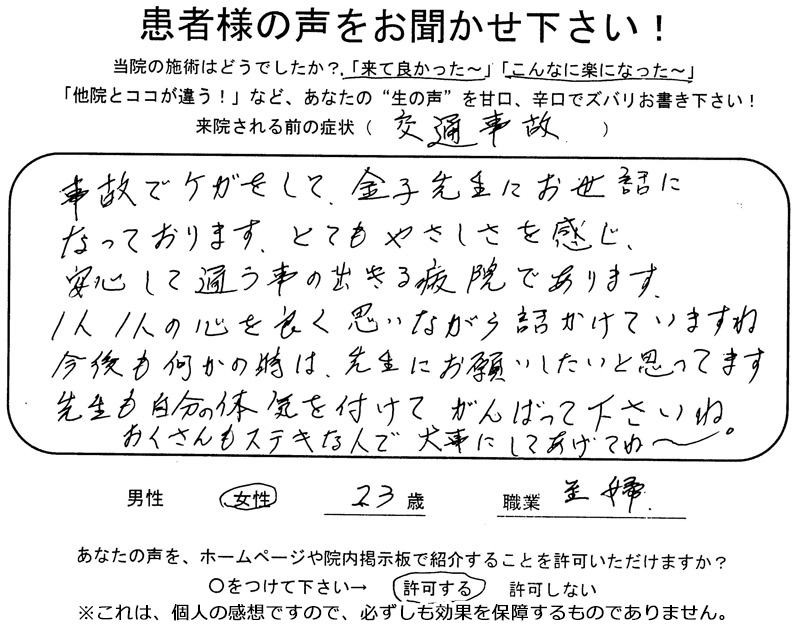 患者様の声をお聞かせ下さい！
当院の施術はどうでしたか？、「来て良かった～」「こんなに楽になった～」
「他院とココが違う！」など、あなたの“生の声”を甘口、辛口でズバリお書き下さい！
来院される前の症状（ 交通事故 ）
事故でケガをして、金子先生にお世話に
なっております、とてもやさしさを感じ、
安心して通う事の出きる病院であります。
1人1人の心を良く思いながら話かけていますね
今後も何かの時は、先生にお願いしたいと思ってます
先生も自分の体気を付けてがんばって下さいね。
おくさんもステキな人で大事にしてあげてね～。
男性 女性 23歳 職業 主婦.
あなたの声を、ホームページや院内掲示板で紹介することを許可いただけますか？
〇をつけて下さい→ 許可する 許可しない
※これは、個人の感想ですので、必ずしも効果を保障するものでありません。